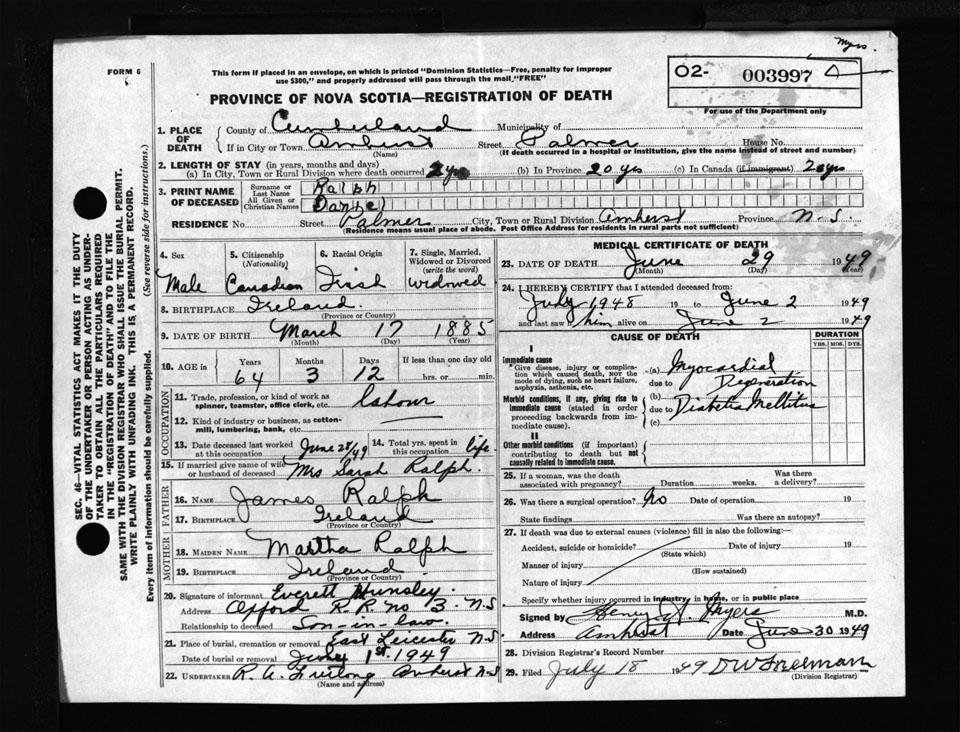 Myers.
FORM 6
This form if placed in an envelope, on which is printed "Dominion Statistics—Free, penalty for improper
use $300," and properly addressed will pass through the mail "FREE"
02- 003997
For use of the Department only
PROVINCE OF NOVA SCOTIA—REGISTRATION OF DEATH
1. PLACE OF DEATH
County of Cumberland Municipality of
If in City or Town Amherst Street Palmer House No.
(Name) (If death occurred in a hospital or institution, give the name instead of street and number)
2. LENGTH OF STAY (in years, months and days)
(a) In City, Town or Rural Division where death occurred 2 yrs (b) In Province 20 yrs (c) In Canada (if immigrant) 20 yrs
3. PRINT NAME OF DECEASED
Surname or Last Name Ralph
All Given or Christian Names Daniel
RESIDENCE No. Street Palmer City, Town or Rural Division Amherst Province N-S.
(Residence means usual place of abode. Post Office Address for residents in rural parts not sufficient)
4. Sex Male
5. Citizenship (Nationality) Canadian
6. Racial Origin Irish
7. Single, Married, Widowed or Divorced (write the word) widowed
8. BIRTHPLACE Ireland.
(Province or Country)
9. DATE OF BIRTH March 17 1885
(Month) (Day) (Year)
10. AGE in Years Months Days If less than one day old
64 3 12 hrs. or min.
OCCUPATION
11. Trade, profession, or kind of work as spinner, teamster, office clerk, etc. labour
12. Kind of industry or business, as cotton-mill, lumbering, bank, etc.
13. Date deceased last worked at this occupation June 28/49
14. Total yrs. spent in this occupation life.
15. If married give name of wife or husband of deceased Mrs Sarah Ralph.
FATHER
16. NAME James Ralph
17. BIRTHPLACE Ireland
(Province or Country)
MOTHER
18. MAIDEN NAME Martha Ralph
19. BIRTHPLACE Ireland.
(Province or Country)
20. Signature of informant Everett Hunsley
Address Oxford R.R. no 3. N-S
Relationship to deceased Son-in-law.
21. Place of burial, cremation or removal East Leicester N-S
Date of burial or removal 1st. 1949
22. UNDERTAKER R. A. Furlong Amherst N-S
(Name and address)
MEDICAL CERTIFICATE OF DEATH
23. DATE OF DEATH June 29 1949
(Month) (Day) (Year)
24. I HEREBY CERTIFY that I attended deceased from:
July 1948 19 to June 2 1949
and last saw him alive on June 2 1949
CAUSE OF DEATH
DURATION
YRS. MOS. DYS.
I
Immediate cause
Give disease, injury or complication which caused death, NOT the mode of dying, such as heart failure, asphyxia, asthenia, etc.
(a) Myocardial
due to Degeneration
Morbid conditions, if any, giving rise to immediate cause (stated in order proceeding backwards from immediate cause).
(b)
due to Diabetis Mellitus
(c)
II
Other morbid conditions (if important) contributing to death but not causally related to immediate cause.
25. If a woman, was the death associated with pregnancy? Duration weeks. Was there a delivery?
26. Was there a surgical operation? No Date of operation 19
State findings Was there an autopsy?
27. If death was due to external causes (violence) fill in also the following:—
Accident, suicide or homicide? Date of injury 19
(State which)
Manner of injury
(How sustained)
Nature of injury
Specify whether injury occurred in industry, in home, or in public place
Signed by Henry Myers M.D.
Address Amherst Date June 30 1949
28. Division Registrar's Record Number
29. Filed July 18 1949 D W Freeman
(Division Registrar)
SEC. 46—VITAL STATISTICS ACT MAKES IT THE DUTY
OF THE UNDERTAKER OR PERSON ACTING AS UNDER-
TAKER TO OBTAIN ALL THE PARTICULARS REQUIRED
IN THE "REGISTRATION OF DEATH" AND TO FILE THE
SAME WITH THE DIVISION REGISTRAR WHO SHALL ISSUE THE BURIAL PERMIT.
WRITE PLAINLY WITH UNFADING INK. THIS IS A PERMANENT RECORD.
Every item of information should be carefully supplied. (See reverse side for instructions.)